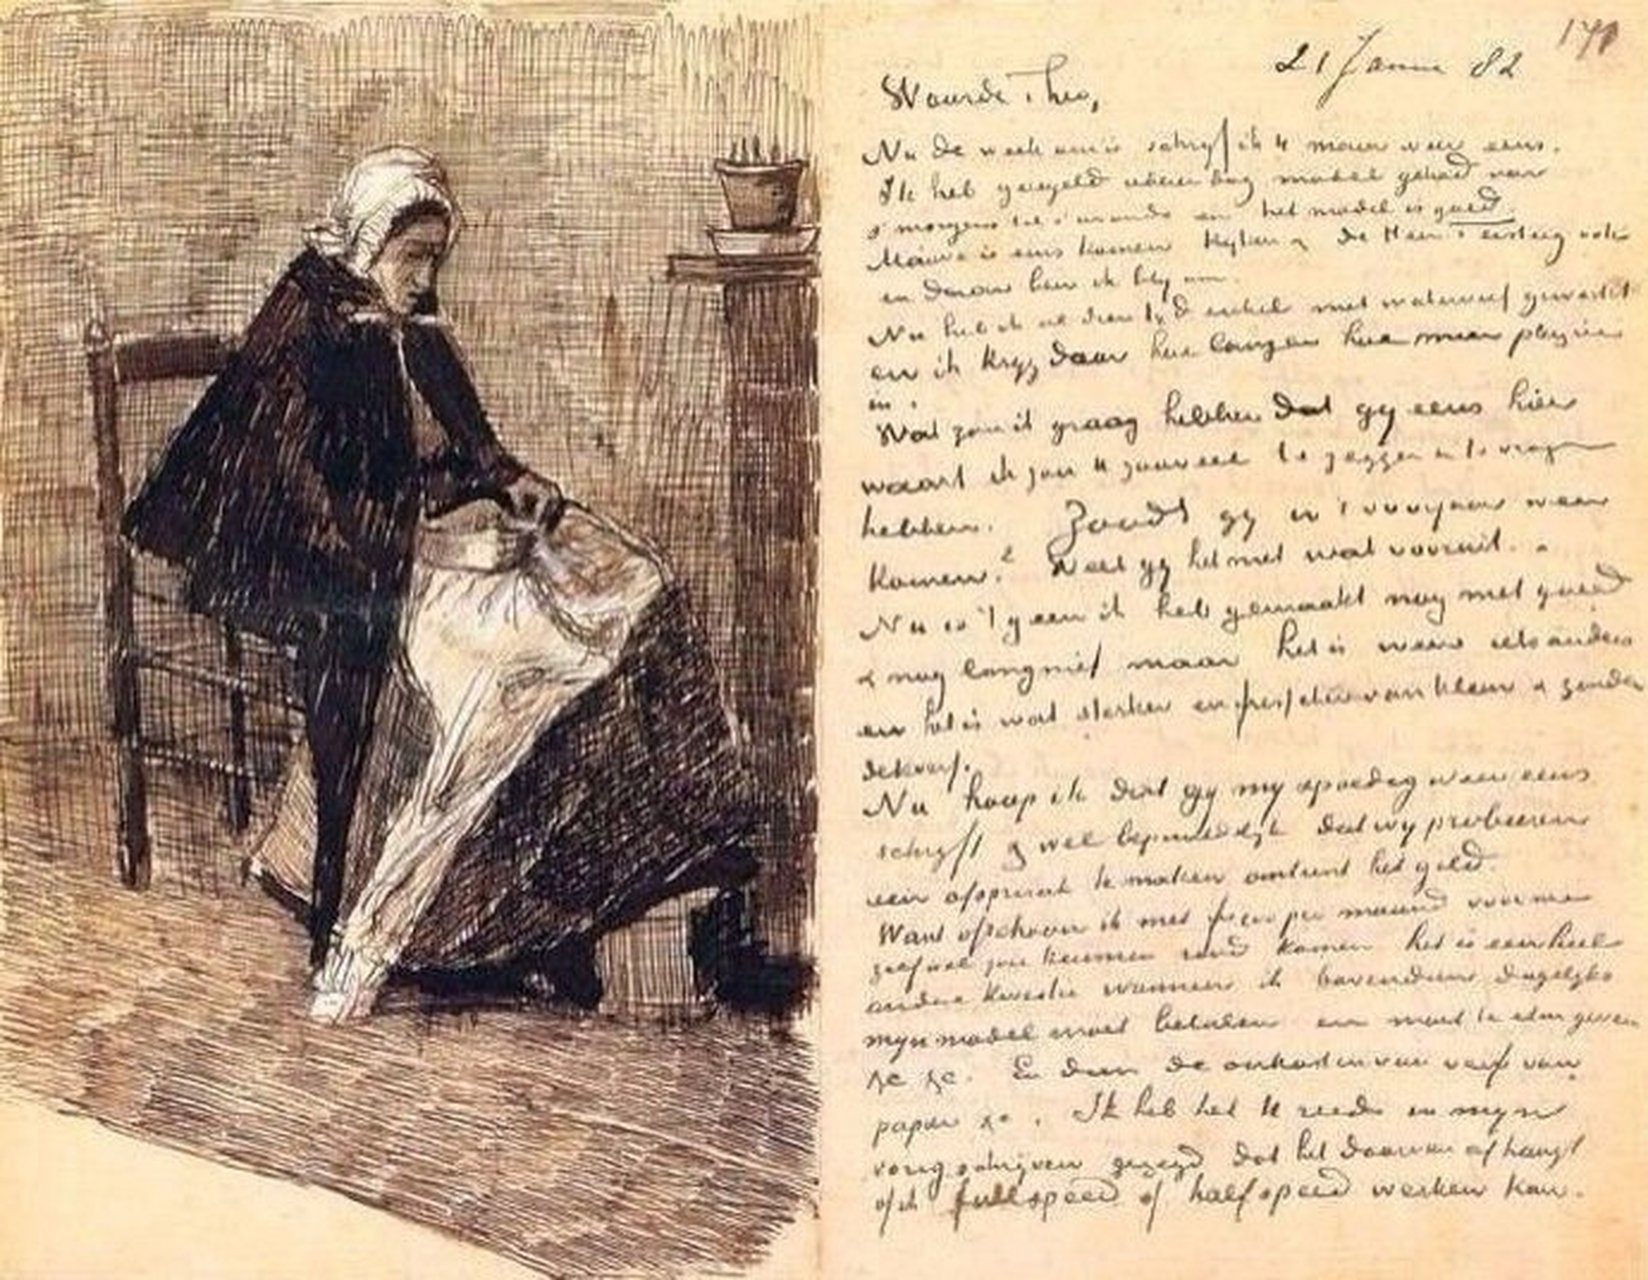 171
21 Januari 82
Waarde Theo,
Nu de week om is schrijf ik U maar weer eens.
Ik heb geregeld iederen dag model gehad van
s'morgens tot s'avonds en het model is goed
Mauve is eens komen kyken, de Heer ook
en daarom ben ik bly om.
Nu heb ik al dien tyd enkel met waterverf gewerkt
en ik kryg daar hoe langer hoe meer plezier
in.
Wat zou ik graag hebben dat gy eens hier
waart ik zou U zooveel te zeggen en te vragen
hebben. Zoudt gy in 't voorjaar weer
komen? Weet gy het met wat vooruit.
Nu is 't geen ik heb gemaakt nog niet goed
& nog lang niet maar het is weer iets anders
en het is wat sterker en frisscher van kleur & zonder
dekverf.
Nu hoop ik dat gy my spoedig weer eens
schryft & wel bepaaldelyk dat wy probeeren
een afspraak te maken omtrent het geld.
Want ofschoon ik met fr 100 per maand voor me
zelf wel zou kunnen rond komen het is een heel
andere kwestie wanneer ik bovendien dagelyks
myn model moet betalen en moet te eten geven
&c &c. En dan de onkosten van verf van
papier &c. Ik heb het U reeds in myn
vorig schrijven gezegd dat het daarvan afhangt
of ik full speed of half speed werken kan.